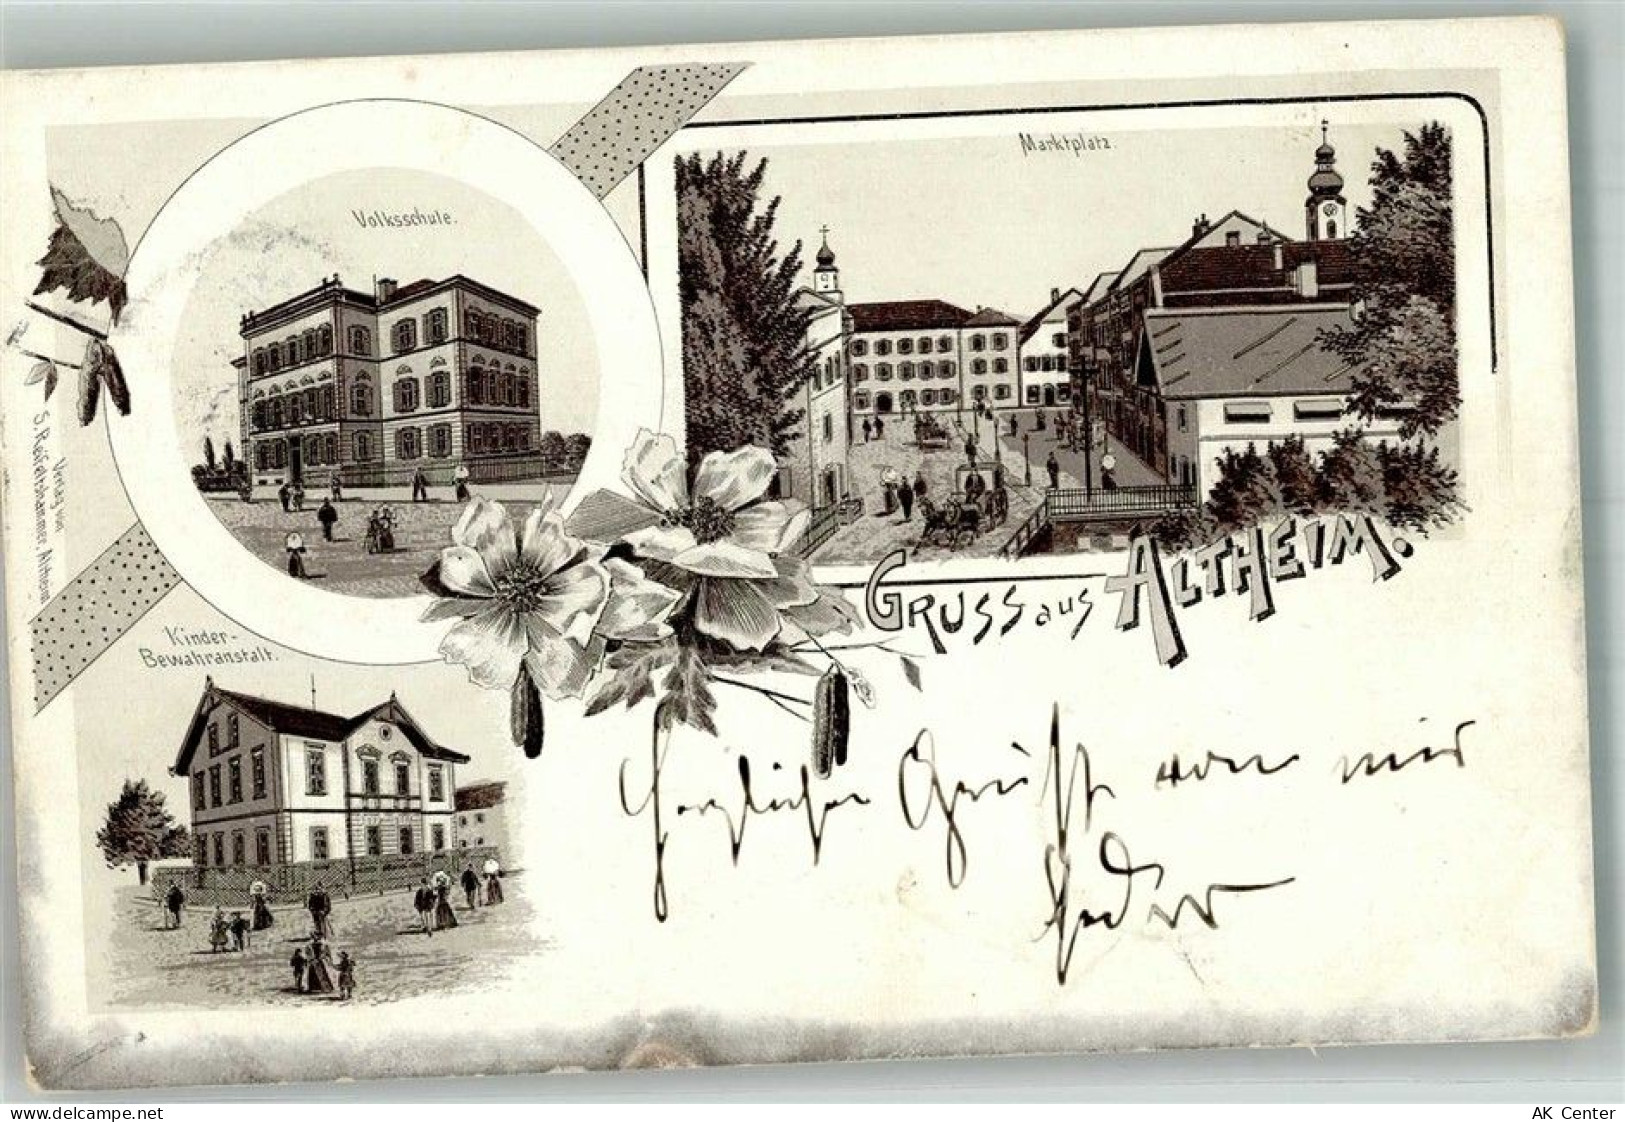 Marktplatz.
Volksschule.
GRUSS aus ALTHEIM.
Kinder-
Bewahranstalt.
Verlag von
Altheim
Herzliche Grüße von mir
www.delcampe.net
AK Center